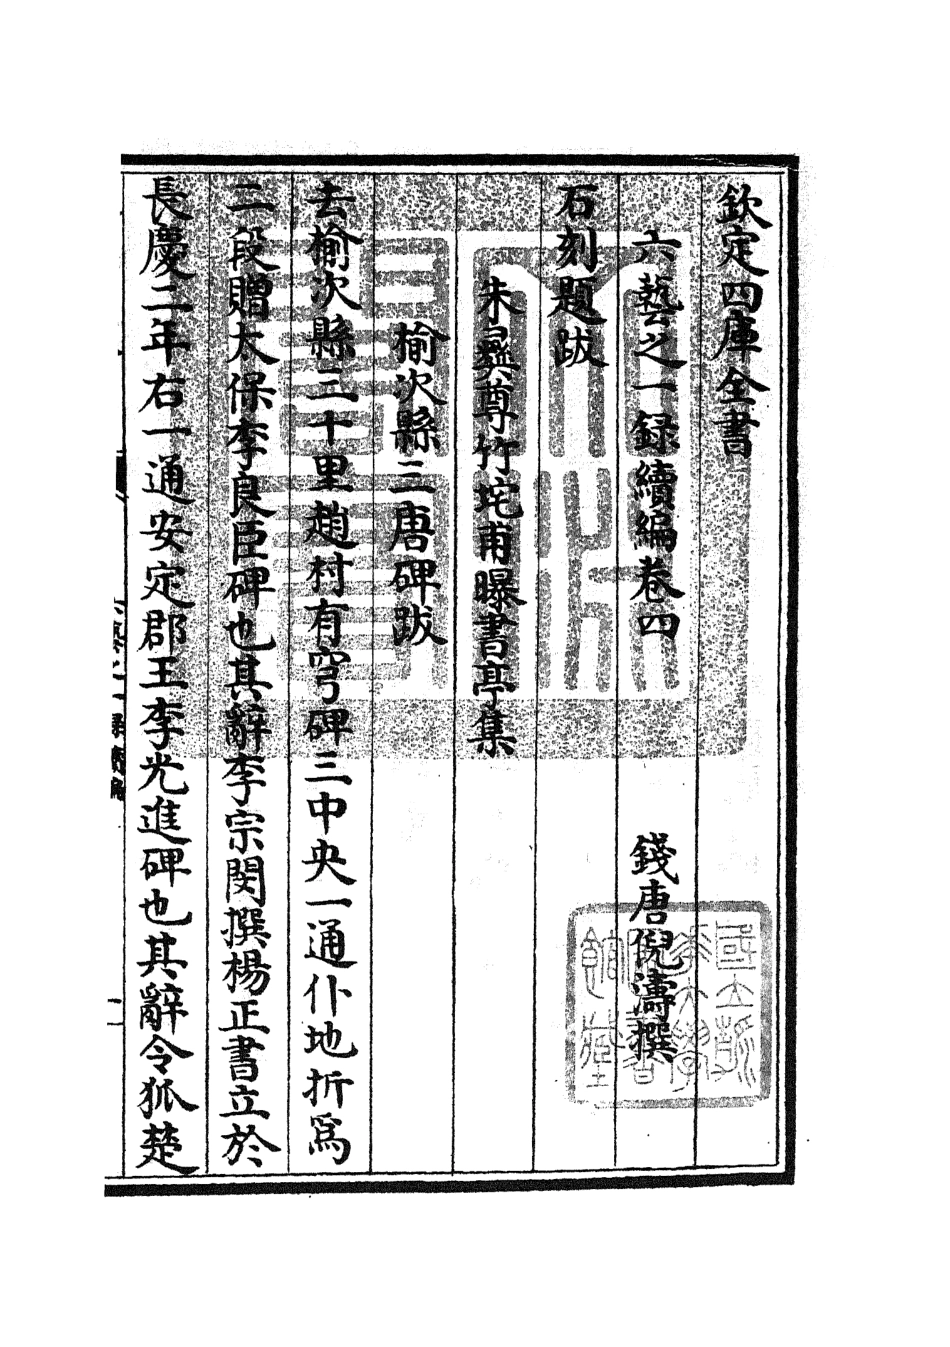 欽定四庫全書
六藝之一録續編卷四
錢唐倪濤撰
石刻題跋
朱彝尊竹垞甫曝書亭集
榆次縣三唐碑跋
去榆次縣三十里趙村有穹碑三中央一通仆地折為
二段贈太保李良臣碑也其辭李宗閔撰楊正書立於
長慶二年右一通安定郡王李光進碑也其辭令狐楚